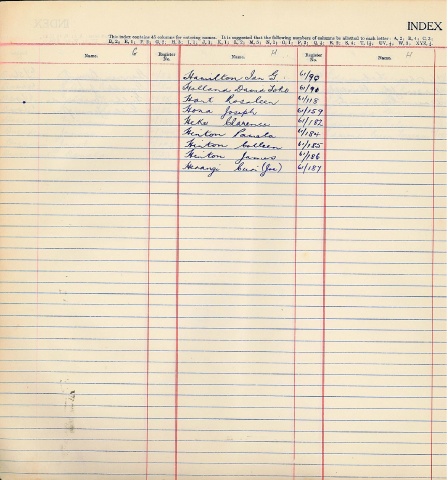 INDEX
This index contains 45 columns for entering names. It is suggested that the following numbers of columns be allotted to each letter: A, 2; B, 4; C, 3;
Name. G Register No. Name. H Register No. Name. H
Hamilton Ian G. 61/90
Holland David 61/90
Hart Rosaleen 61/118
Hona Joseph 61/159
Heke Clarence 61/182
Hinton Pamela 61/184
Hinton Colleen 61/185
Hinton James 61/186
Herangi Curi (Joe) 61/187